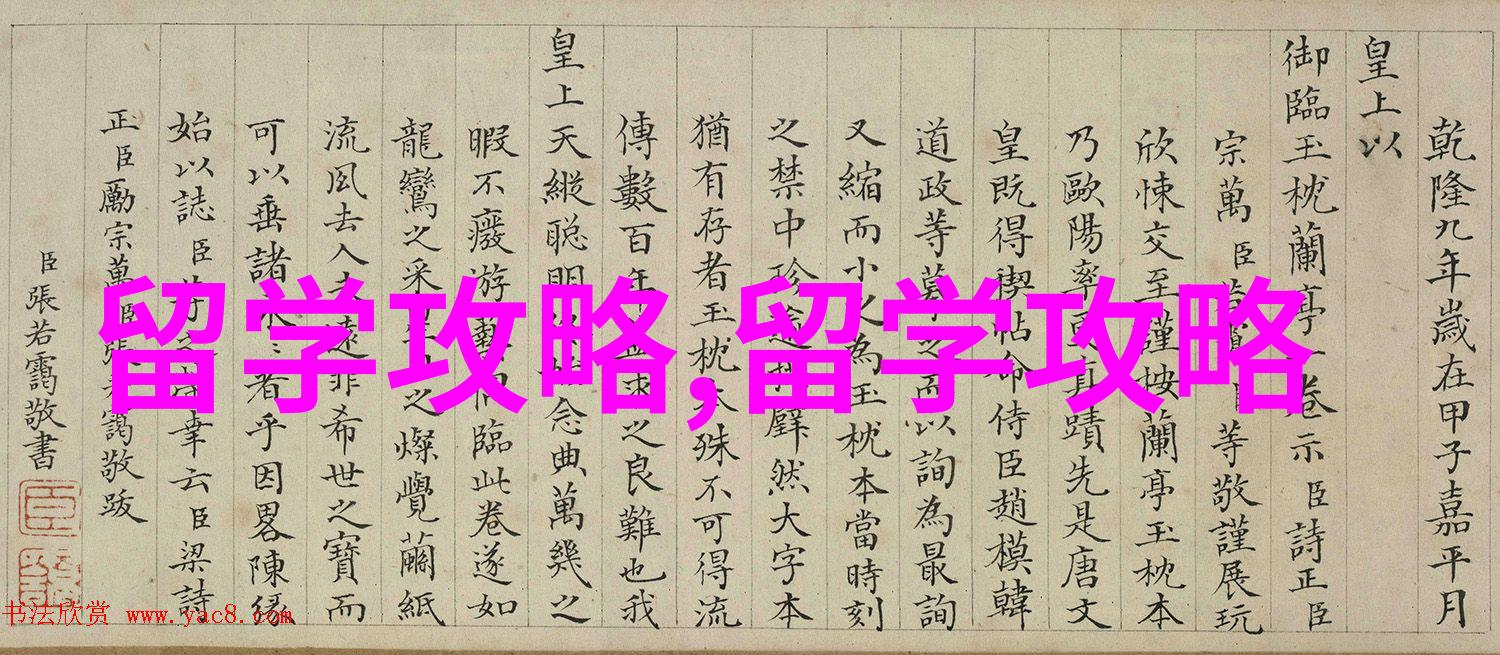 乾隆九年歲在甲子嘉平月
皇上以
御臨玉枕蘭亭一卷示臣詩正臣
宗萬臣等敬謹展玩
欣悚交至謹按蘭亭玉枕本
乃歐陽率更真蹟先是唐文
皇既得禊帖命侍臣趙模韓
道政等摹之而以詢為最詢
又縮而小之為玉枕本當時刻
之禁中珍然大字本
猶有存者玉枕本殊不可得流
傳數百年之良難也我
皇上天縱聰明念典萬幾之
暇不癈游臨此卷遂如
龍鸞之采之燦覺繭紙
流風去人遠希世之寶而
可以垂諸者乎因畧陳緣
始以誌臣幸云臣梁詩
正臣勵宗萬臣張若靄敬跋
臣張若靄敬書
留学攻略,留学攻略
书法欣赏 www.yac8.com